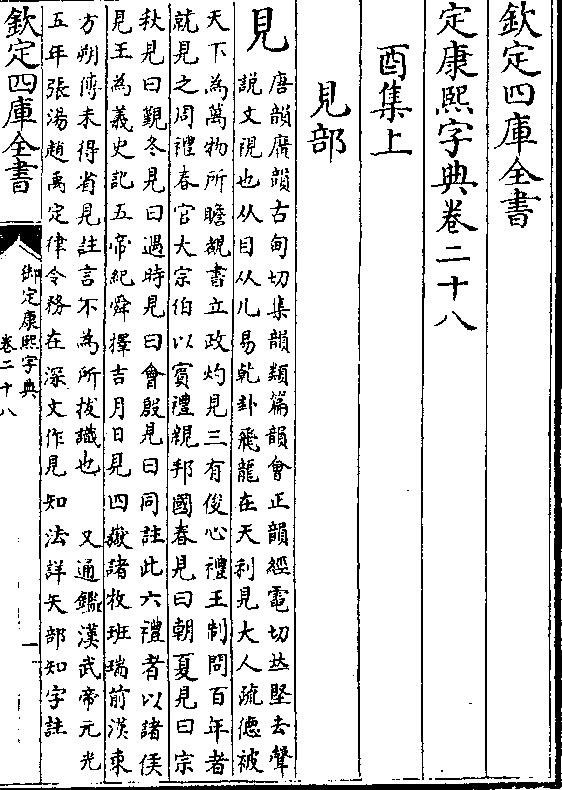 欽定四庫全書
定康熙字典卷二十八
酉集上
見部
見
唐韻廣韻古甸切集韻類篇韻會正韻經電切𠀤堅去聲
說文視也从目从儿易乾卦飛龍在天利見大人疏德被
天下為萬物所瞻覩書立政灼見三有俊心禮王制問百年者
就見之周禮春官大宗伯以賓禮親邦國春見曰朝夏見曰宗
秋見曰覲冬見曰遇時見曰會殷見曰同註此六禮者以諸侯
見王為義史記五帝紀舜擇吉月日見四嶽諸牧班瑞前漢東
方朔傳未得省見註言不為所拔識也 又通鑑漢武帝元光
五年張湯趙禹定律令務在深文作見知法詳矢部知字註
欽定四庫全書
御定康熙字典
卷二十八
一